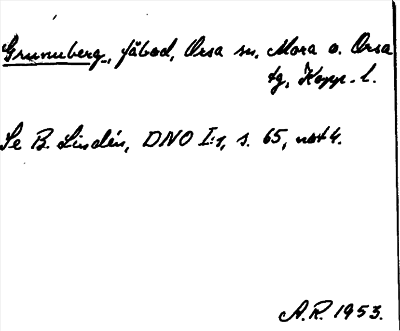 Grunuberg, fäbod, Orsa sn, Mora o. Orsa
tg, Kopp. l.
Se B. Lindén, DNO I:1, s. 65, not 4.
A.R. 1953.